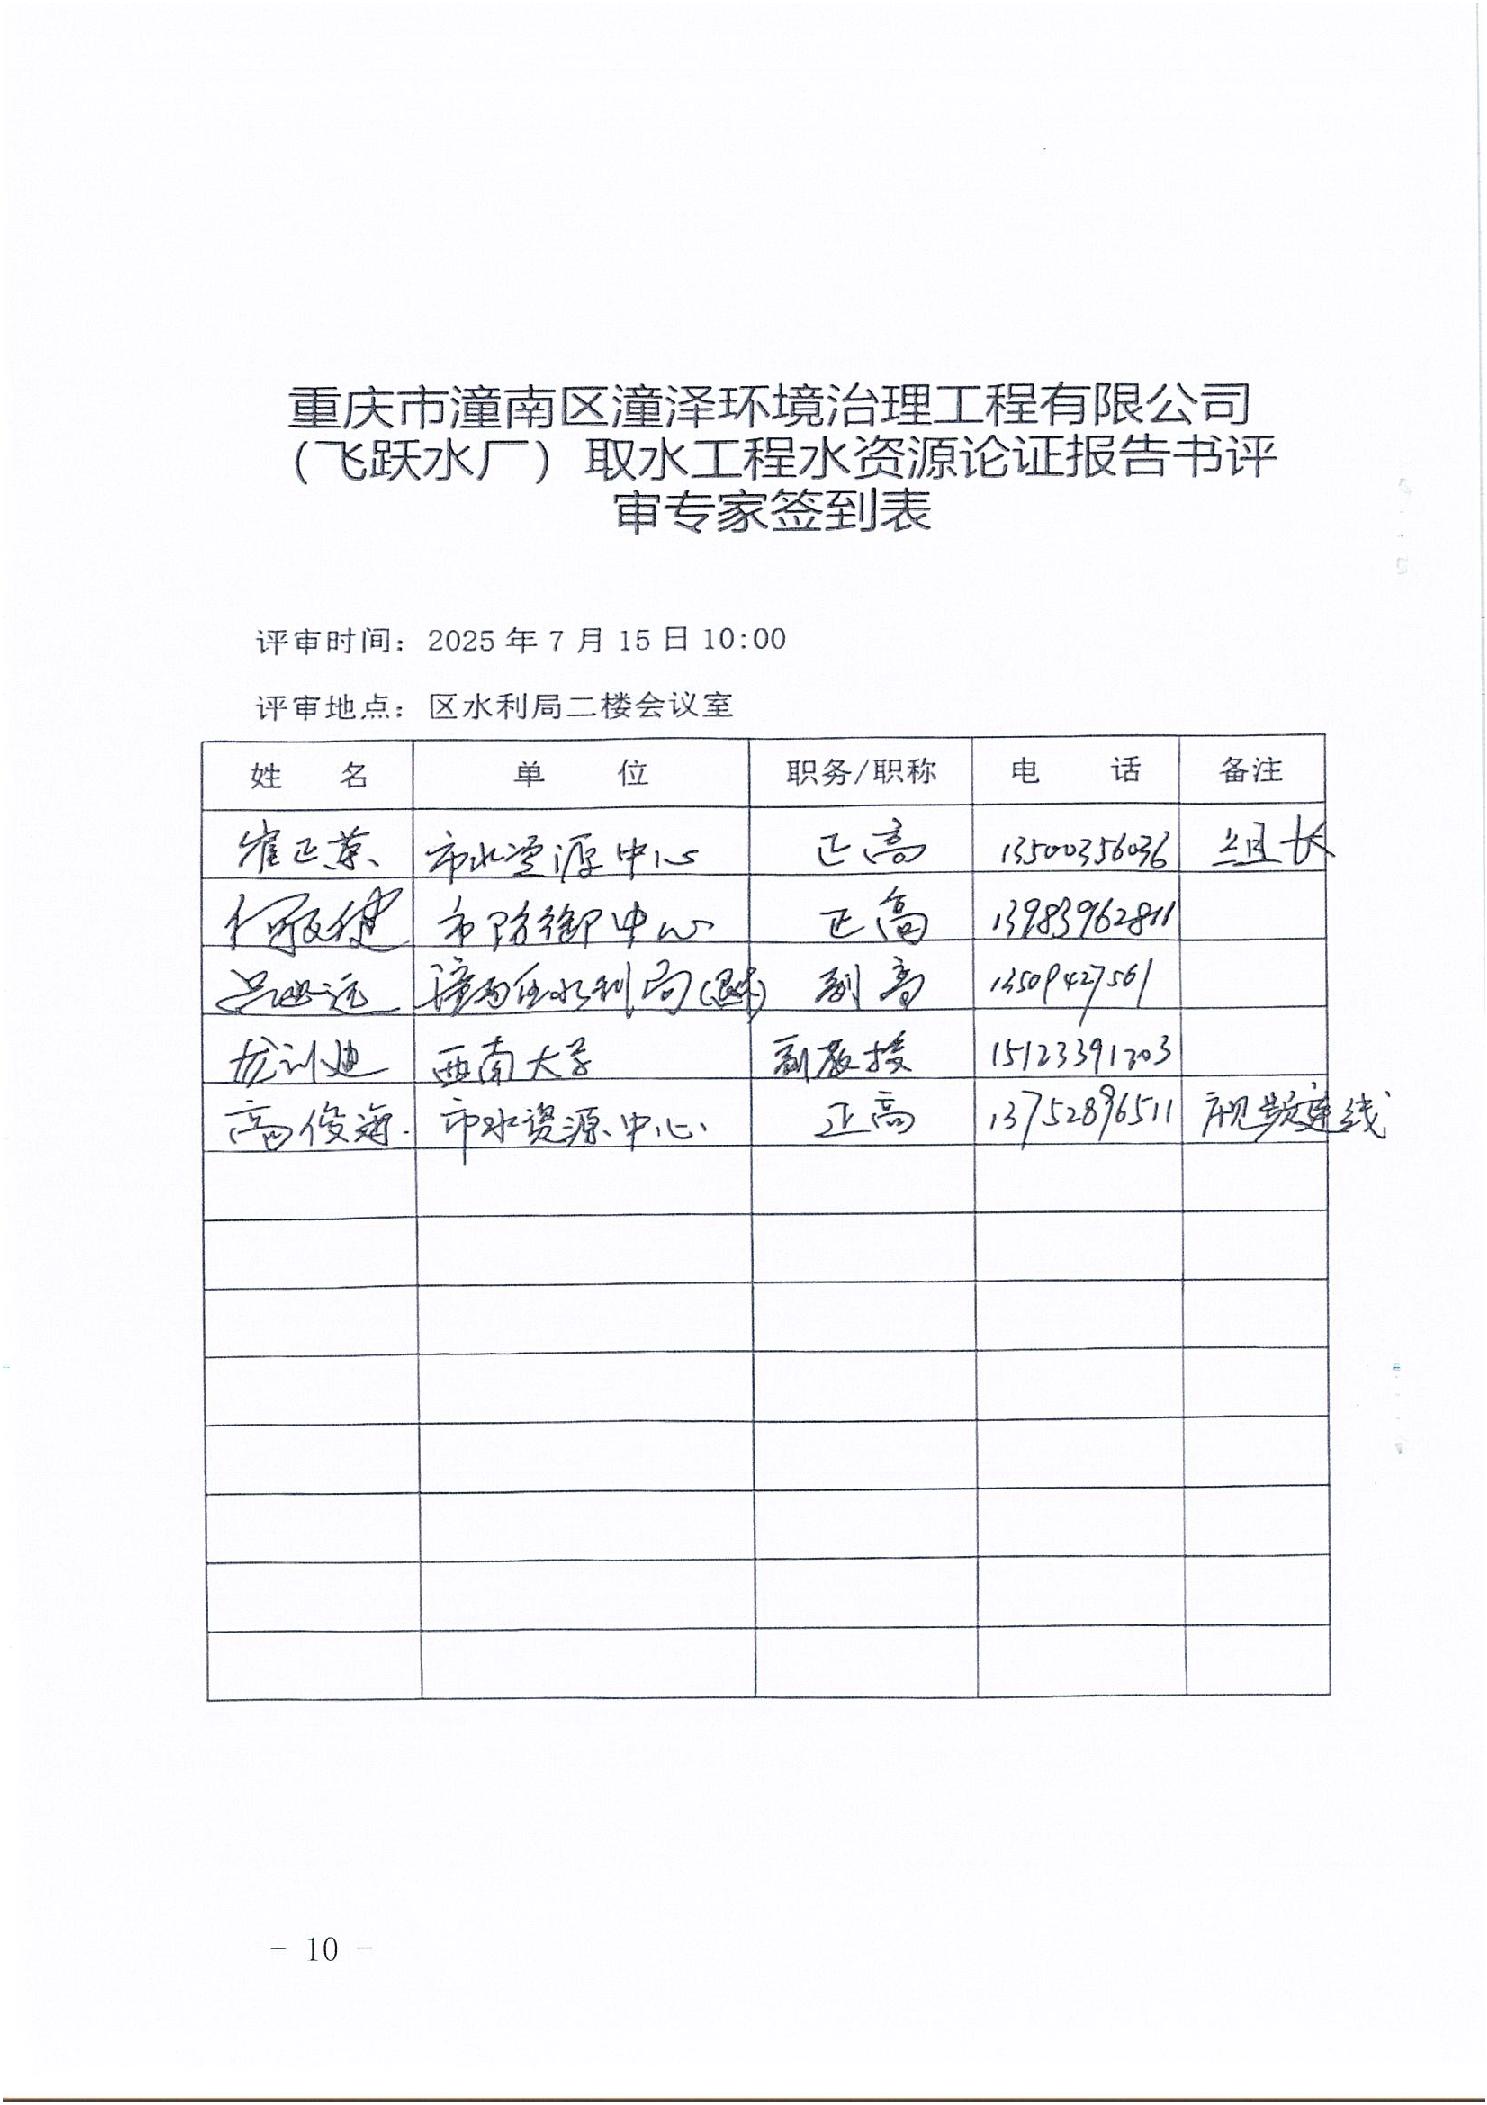 重庆市潼南区潼泽环境治理工程有限公司
（飞跃水厂）取水工程水资源论证报告书评
审专家签到表
评审时间：2025年7月15日10:00
评审地点：区水利局二楼会议室
姓 名 单 位 职务/职称 电 话 备注
崔正荣 市水资源中心 正高 13500356036 组长
何敬健 市防御中心 正高 13983962811
潼南区水利局(退休) 副高 13509427561
龙训建 西南大学 副教授 15123391303
高俊海 市水资源中心 正高 13752896511 视频连线
- 10 -